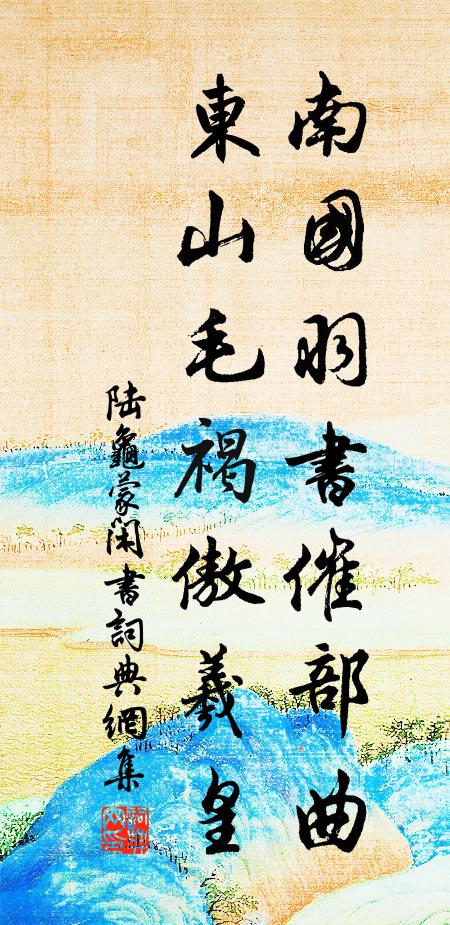 南國羽書催部曲
東山毛褐傲羲皇
陸龜蒙閑書詞典網集